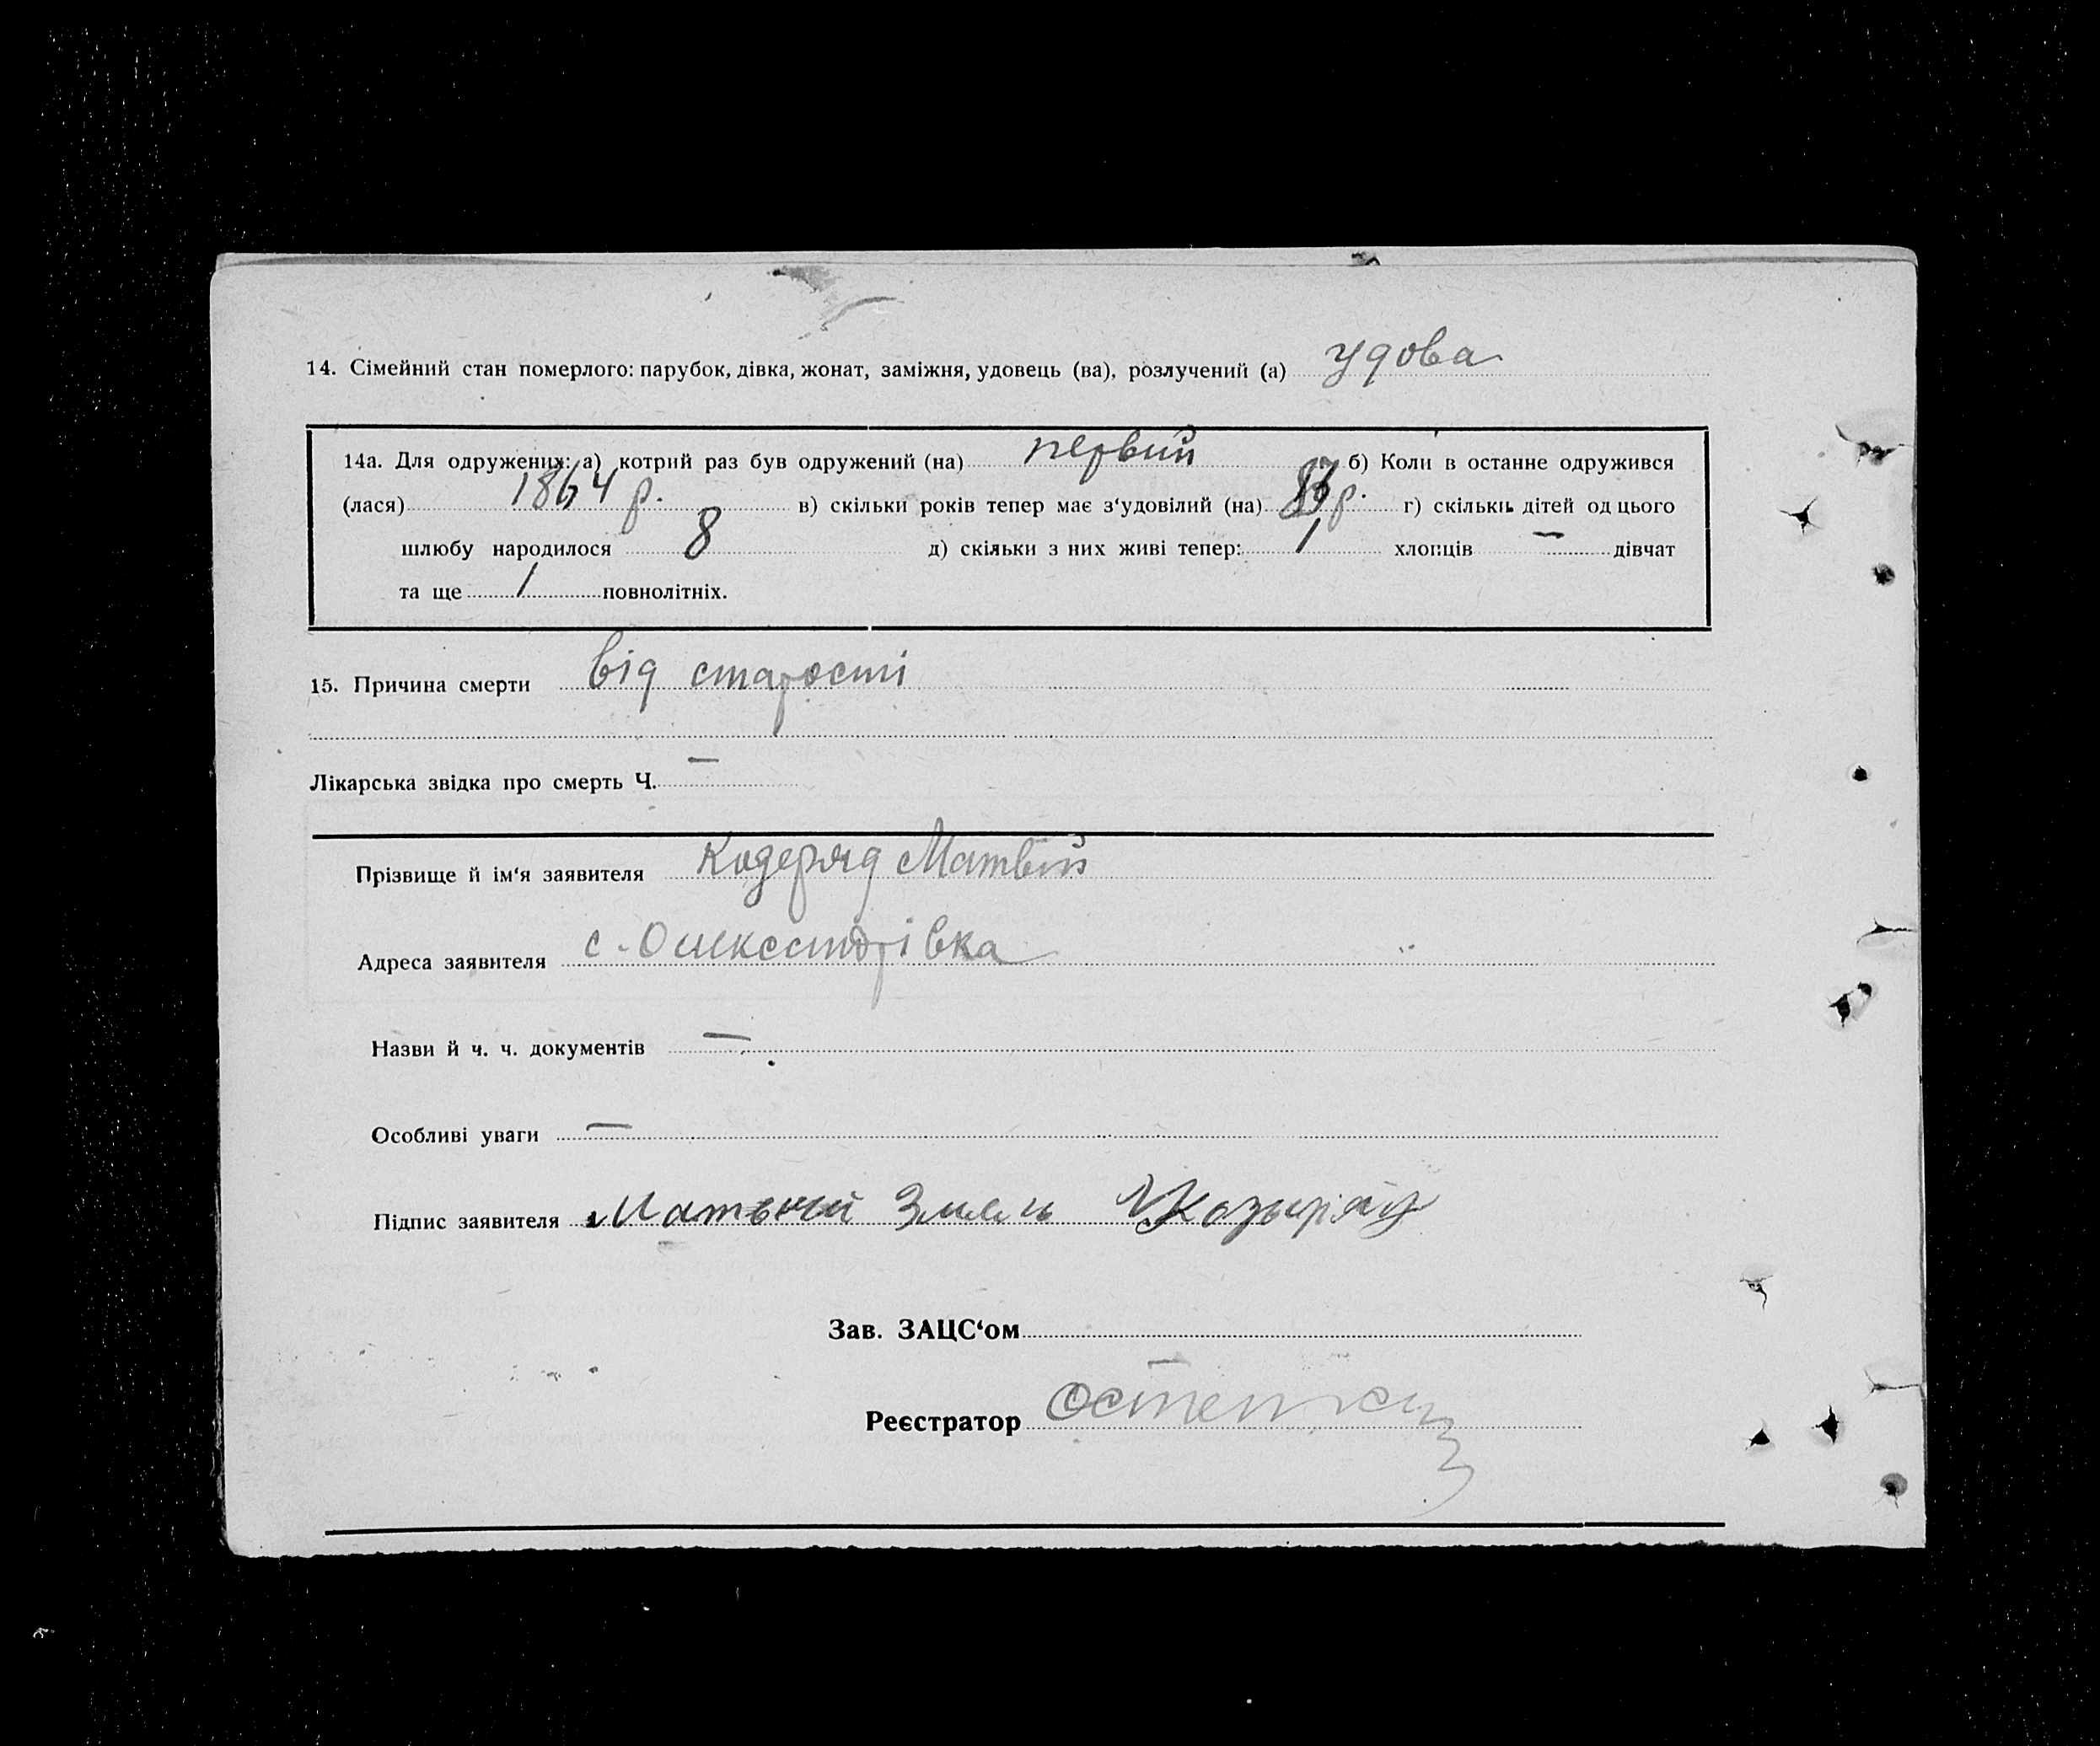 14. Сімейний стан померлого: парубок, дівка, жонат, заміжня, удовець (ва), розлучений (а) удова
14а. Для одружених: а) котрий раз був одружений (на) первий б) Коли в останне одружився
(лася) 1864 р. в) скільки років тепер має з‘удовілий (на) р. г) скільки дітей од цього
шлюбу народилося 8 д) скільки з них живі тепер: 1 хлопців — дівчат
та ще 1 повнолітніх.
15. Причина смерти від старості
Лікарська звідка про смерть Ч. —
Прізвище й ім‘я заявителя Матвій
Адреса заявителя с. Олександрівка
Назви й ч. ч. документів —
Особливі уваги —
Підпис заявителя
Зав. ЗАЦС‘ом
Реєстратор